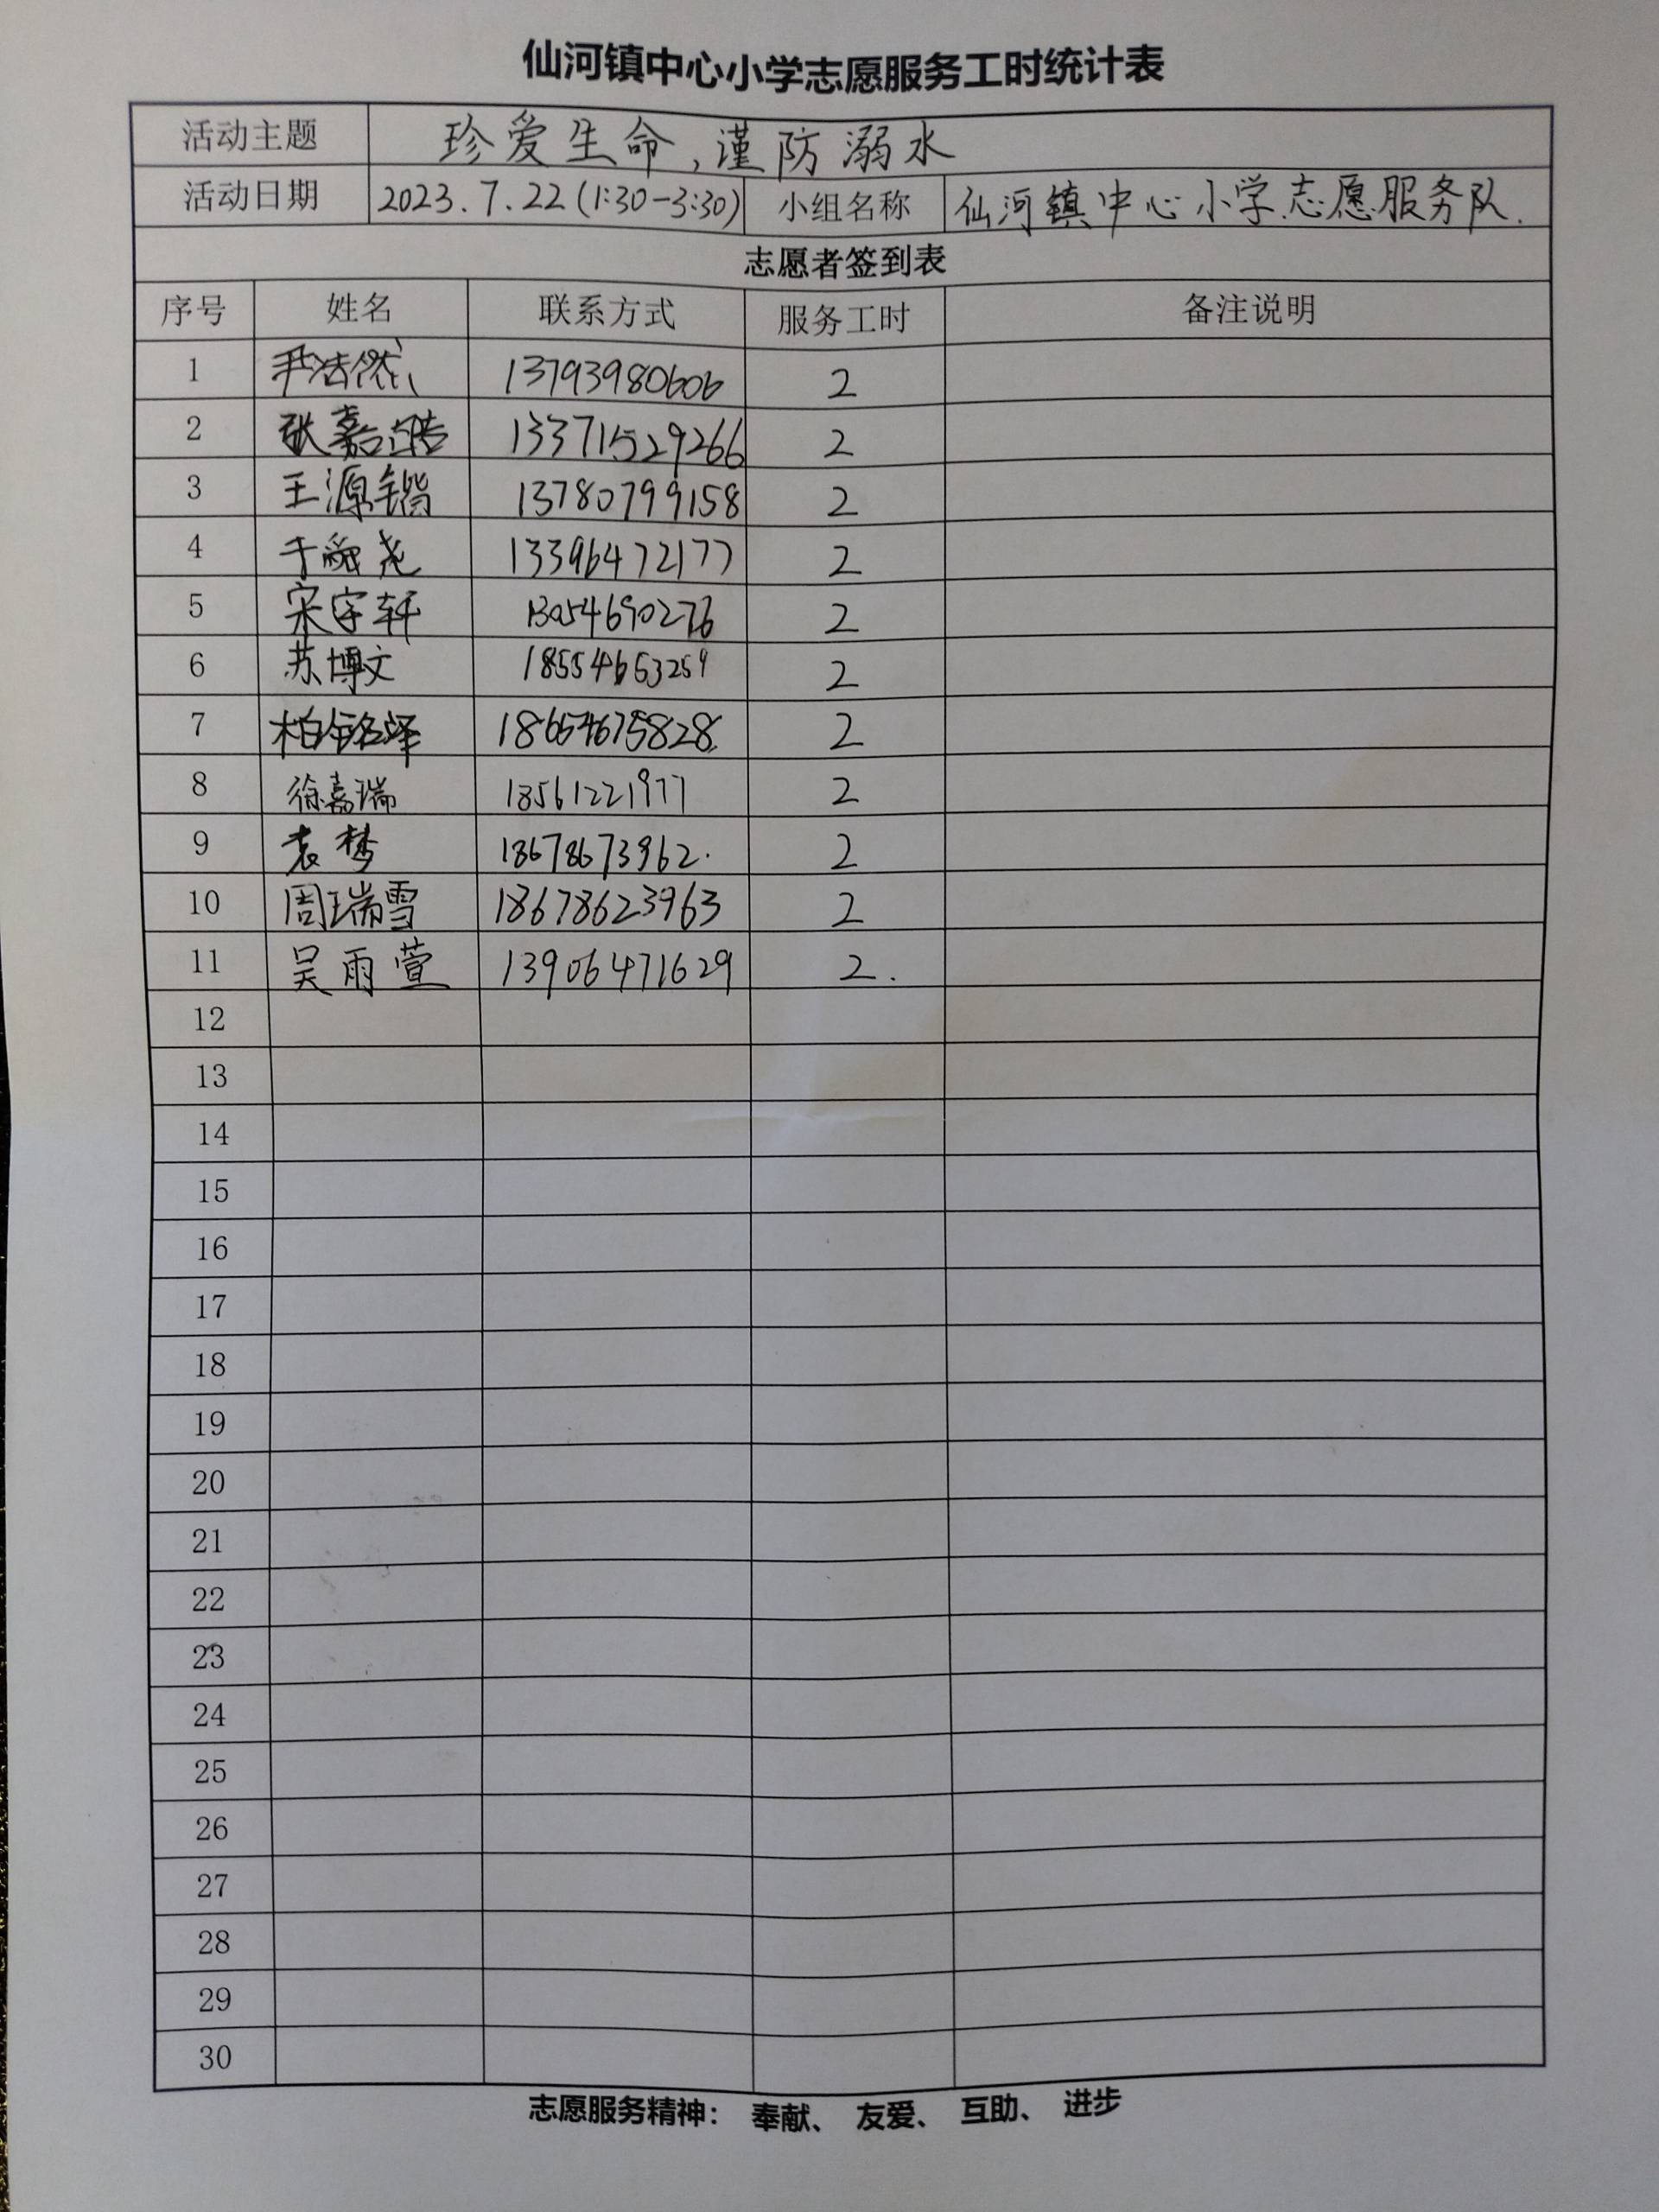 仙河镇中心小学志愿服务工时统计表
活动主题 珍爱生命,谨防溺水
活动日期 2023.7.22(1:30-3:30) 小组名称 仙河镇中心小学志愿服务队.
志愿者签到表
序号 姓名 联系方式 服务工时 备注说明
1 尹浩然 13793980606 2
2 张嘉 13371529266 2
3 王源锴 13780799158 2
4 于舜尧 13396472177 2
5 宋宇轩 13054690276 2
6 苏博文 18554653259 2
7 柏铭泽 18654675828. 2
8 徐嘉瑞 18561221977 2
9 袁梦 18678673962. 2
10 周瑞雪 18678623963 2
11 吴雨萱 13906471629 2.
12
13
14
15
16
17
18
19
20
21
22
23
24
25
26
27
28
29
30
志愿服务精神： 奉献、 友爱、 互助、 进步